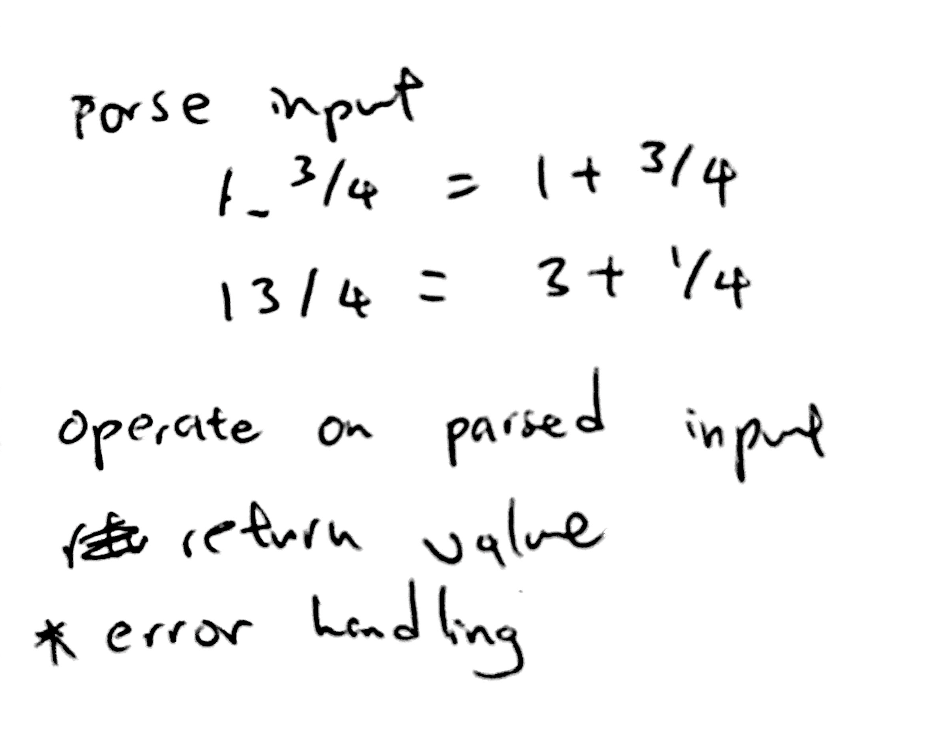 Parse input
1_ 3/4 = 1 + 3/4
13/4 = 3 + 1/4
operate on parsed input
return value
* error handling